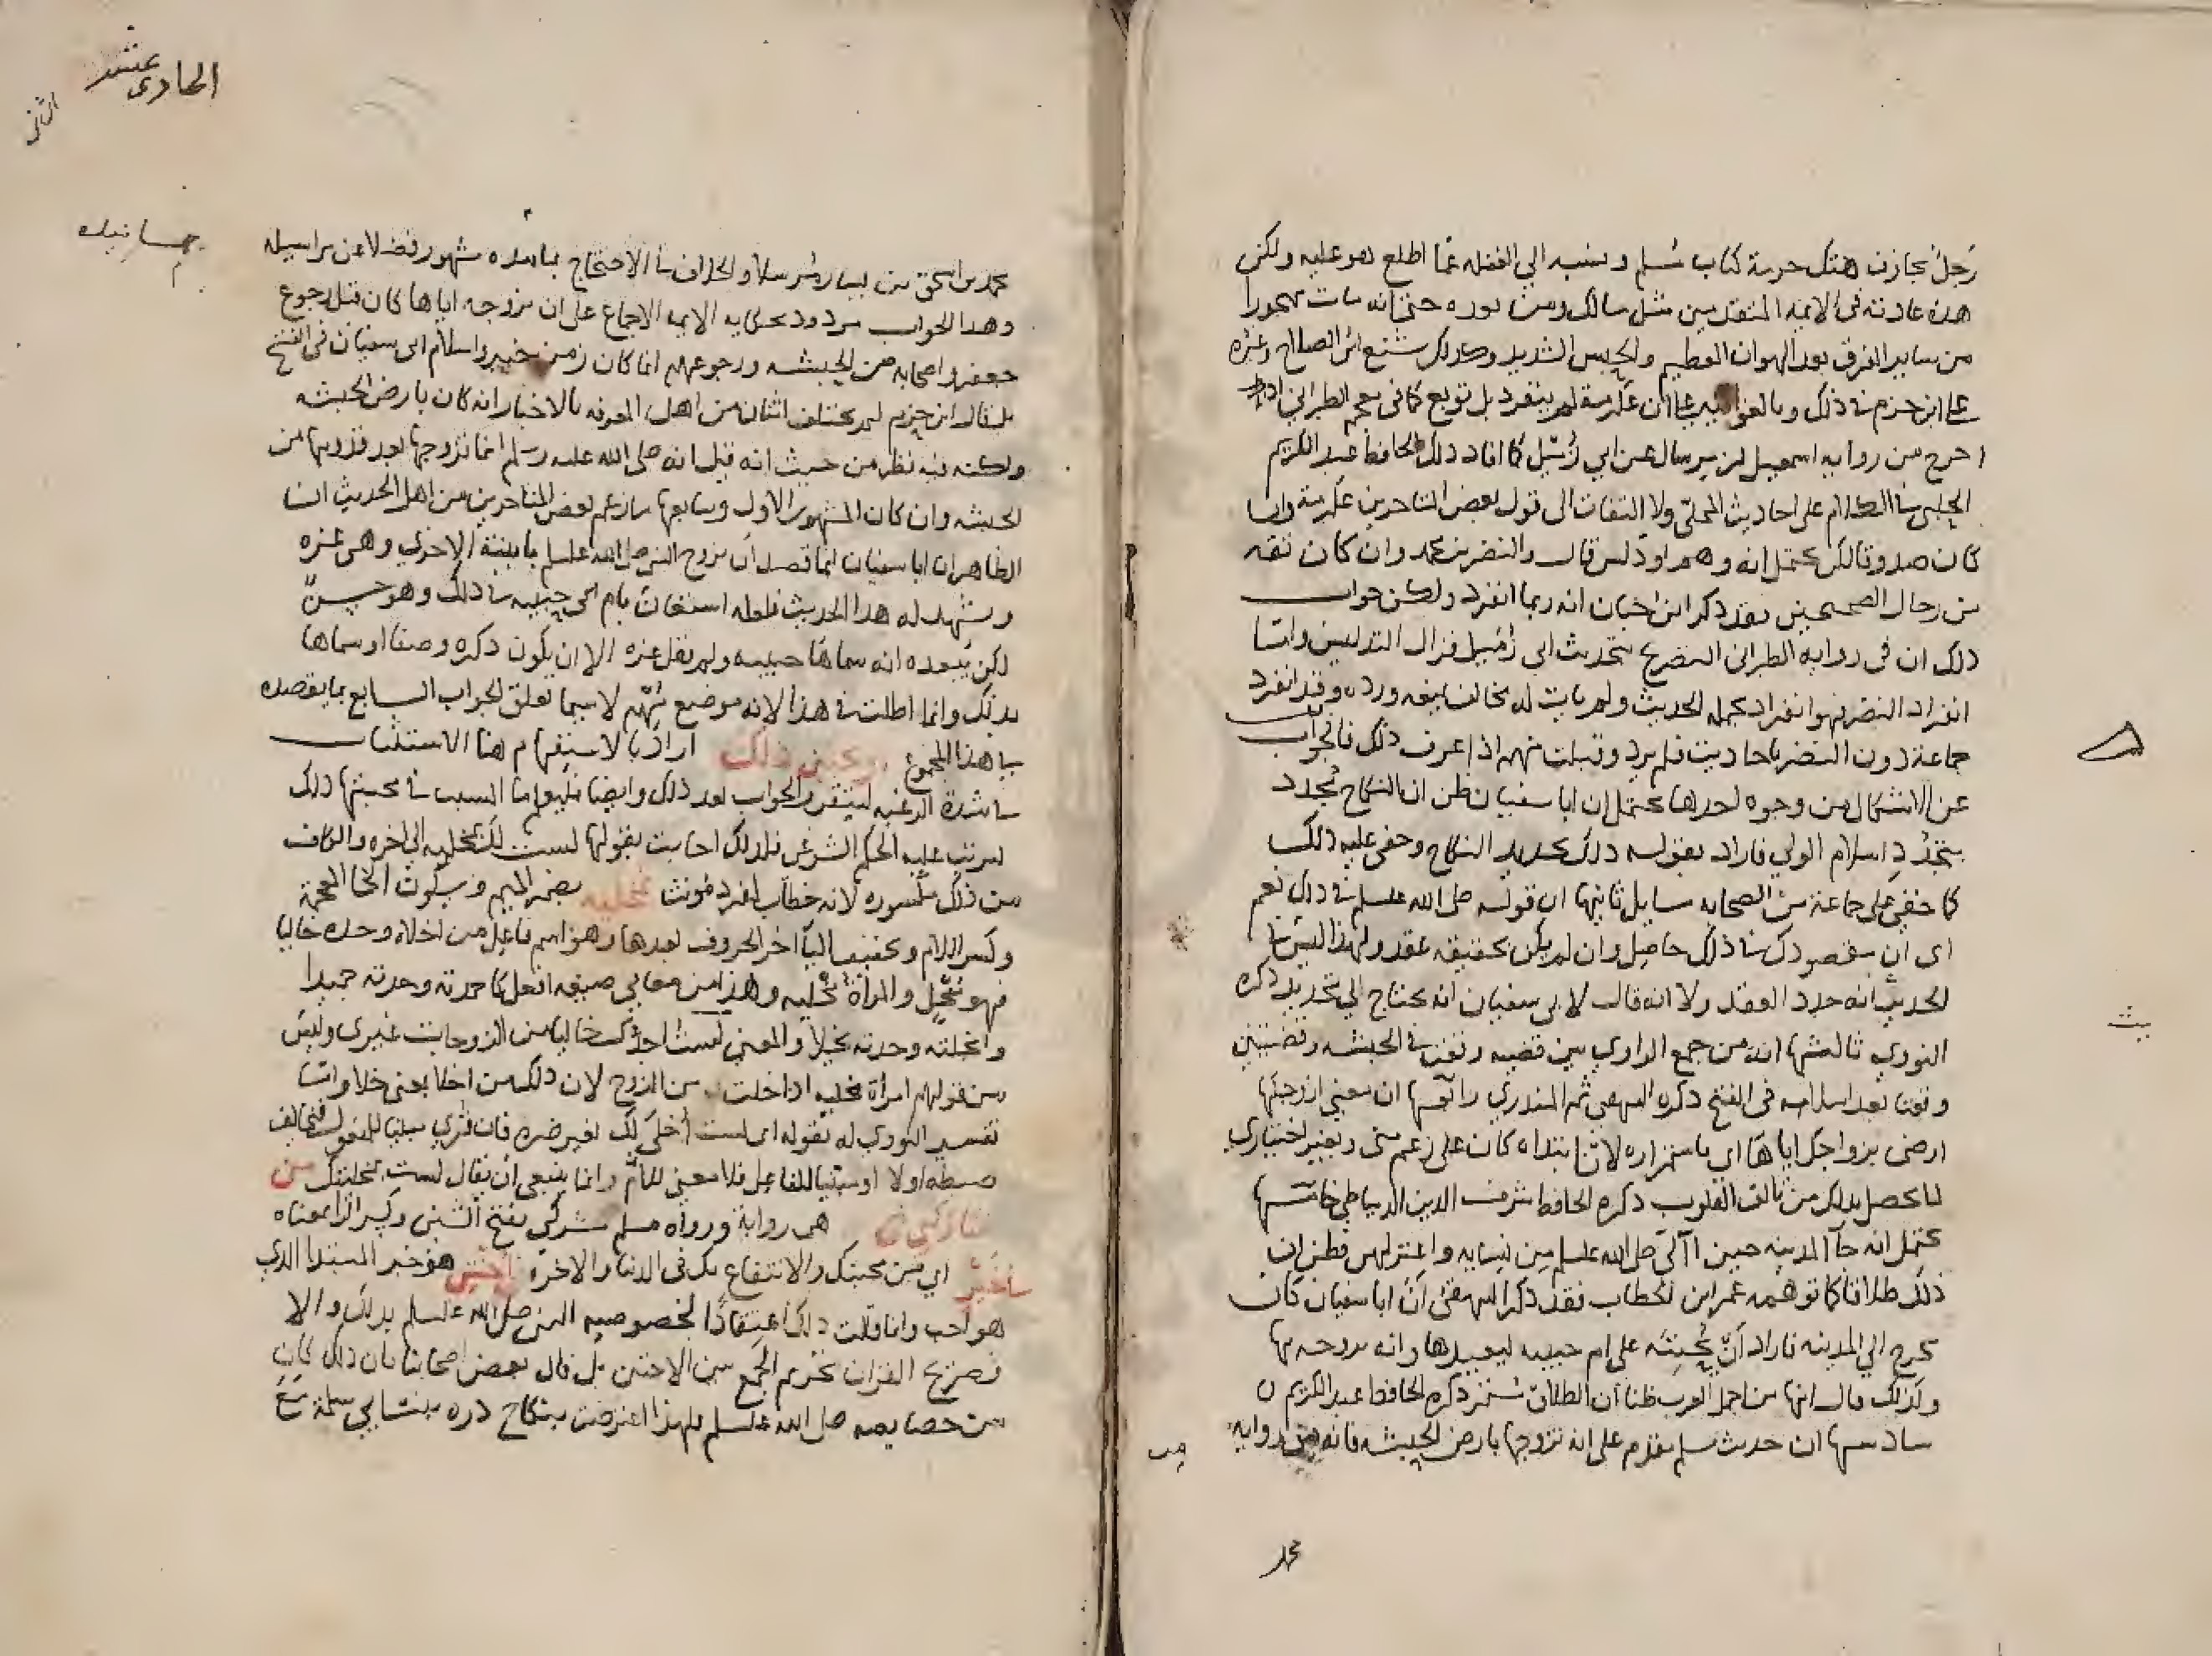 رجل مجازف هتك حرمة كتاب مسلم ونسبه الي الغفله عما اطلع هو عليه ولكن
هذه عادته في الايمه المتقدمين مثل مالك ومن بعده حتي انه مات مهجورا
من ساير الفرق بعد الهوان العظيم والحبس الشديد وكذلك شنع ابن الصلاح وغيره
علي ابن حزم في ذلك وبالغوا علي ان عكرمة لم ينفرد بل توبع كما في معجم الطبراني اذ
اخرج من روايه اسمعيل بن مرسال عن ابي زميل كما افاد ذلك الحافظ عبد الكريم
الحلبي في الكلام علي احاديث المحلي ولا التفات الي قول بعض المتاخرين عكرمة وان
كان صدوقا لكن يحتمل انه وهم او دلس قال والنضر بن محمد وان كان ثقه
من رجال الصحيحين فقد ذكر ابن حبان انه ربما انفرد ولكن جواب
ذلك ان في رواية الطبراني التصريح بتحديث ابي زميل فزال التدليس واما
انفراد النضر فهو انفراد بجمله الحديث ولم يات له مخالف فيه ورده وقد انفرد
جماعة دون النضر باحاديث فلم يرد وقبلت منهم اذا عرف ذلك فالجواب
عن الاشكال من وجوه احدها يحتمل ان ابا سفيان ظن ان النكاح تجدد
بتجدد اسلام الولي فاراد بقوله ذلك تجديد النكاح وخفي عليه ذلك
كما خفي علي جماعة من الصحابه مسايل ثانيها ان قوله صلي الله عليه وسلم في ذلك نعم
اي ان مقصودك في ذلك حاصل وان لم يكن بحقيقه عقد ولهذا ليس في
الحديث انه جدد العقد ولا انه قال لابي سفيان انه يحتاج الي تجديد ذكره
النووي ثالثها انه من جمع الراوي بين قضيه وقعت في الحبشه وقضيتين
وقعتا بعد اسلامه في الفتح ذكره البيهقي ثم المنذري رابعها ان معني ازوجكها
ارضي بزواجك اياها اي باستمراره لان ابتداه كان علي زعم مني وبغير اختياري
لما يحصل بذلك من تالف القلوب ذكره الحافظ شرف الدين الدمياطي خامسها
يحتمل انه جآ المدينه حين آلي صلي الله عليه وسلم من نسايه واعتزلهن فظن ان
ذلك طلاقا كما توهمه عمر ابن الخطاب فقد ذكر البيهقي ان ابا سفيان كان
يخرج الي المدينه فاراد ان يحننه علي ام حبيبه ليعيدها وانه يزوجه بها
ولذلك قال انها من اجمل العرب ظنا ان الطلاق ذكره الحافظ عبد الكريم
سادسها ان حديث مسلم مقدم علي انه تزوجها بارض الحبشه فانه من روايه
محمد
الحادي عشر
الثاني
محمد بن اسحق بن يسار مرسلا والخلاف في الاحتجاج بمسنده مشهور فضلا عن مراسيله
وهذا الجواب مردود بحكايه الايمه الاجماع علي ان تزوجه اياها كان قبل رجوع
جعفر واصحابه من الحبشه ورجوعهم انما كان زمن خيبر واسلام ابي سفيان في الفتح
بل قال ابن حزم لم يختلف اثنان من اهل المعرفه بالاخبار انه كان بارض الحبشه
ولكنه فيه نظر من حيث انه قيل انه صلي الله عليه وسلم انما تزوجها بعد قدومها من
الحبشه وان كان المشهور الاول وسابعها ما زعم بعض المتاخرين من اهل الحديث ان
الظاهر ان ابا سفيان انما قصد ان يزوج النبي صلي الله عليه وسلم بابنته الاخري وهي عزه
ويشهد له هذا الحديث فلعله استعان بام حبيبه في ذلك وهو حسن
لكن يبعده انه سماها حبيبه ولم يقل عزه الا ان يكون ذكره وصفا او سماها
بذلك وانما اطلت في هذا لانه موضع مهم لاسيما تعلق الجواب السابع بما يقصده
بهذا المجموع وتحبين ذلك اراد بالاستفهام هنا الاستثبات
في شدة الرغبه ليتقرر الجواب بعد ذلك وايضا فليعلم ما السبب في محبتها ذلك
ليرتب عليه الحكم الشرعي فلذلك اجابت بقولها لست لك بمخليه الي اخره والكاف
من ذلك مكسوره لانه خطاب لمفرد مونث مخليه بضم الميم وسكون الخا المعجمة
وكسر اللام وتخفيف اليا اخر الحروف بعدها وهو اسم فاعل من اخلاه وجده خاليا
فهو مخل والمراة مخليه وهذا من معاني صيغه افعل كاحمدته وجدته حميدا
وابخلته وجدته بخيلا والمعني لست اجدك خاليا من الزوجات غيري وليس
من قولهم امراة مخليه اذا خلت من الزوج لان ذلك من اخلا بمعني خلا واما
تفسير النووي له بقوله اي لست اخلي لك بغير ضره فان قري مبنيا للمفعول فيخالف
ضبطه اولا او مبنيا للفاعل فلا معني للام وانما ينبغي ان يقال لست بمخليتك من
شاركني هي رواية ورواه مسلم شركني بفتح الشين وكسر الرا معناه
في خير اي من صحبتك والانتفاع بك في الدنيا والاخرة اختي هو خبر المبتدا الذي
هو احب وانما قالت ذلك اعتقادا لخصوصيه النبي صلي الله عليه وسلم بذلك والا
فصريح القران تحريم الجمع بين الاختين بل قال بعض اصحابنا بان ذلك كان
من خصايصه صلي الله عليه وسلم فلهذا اعترضت بنكاح دره بنت ابي سلمة مع